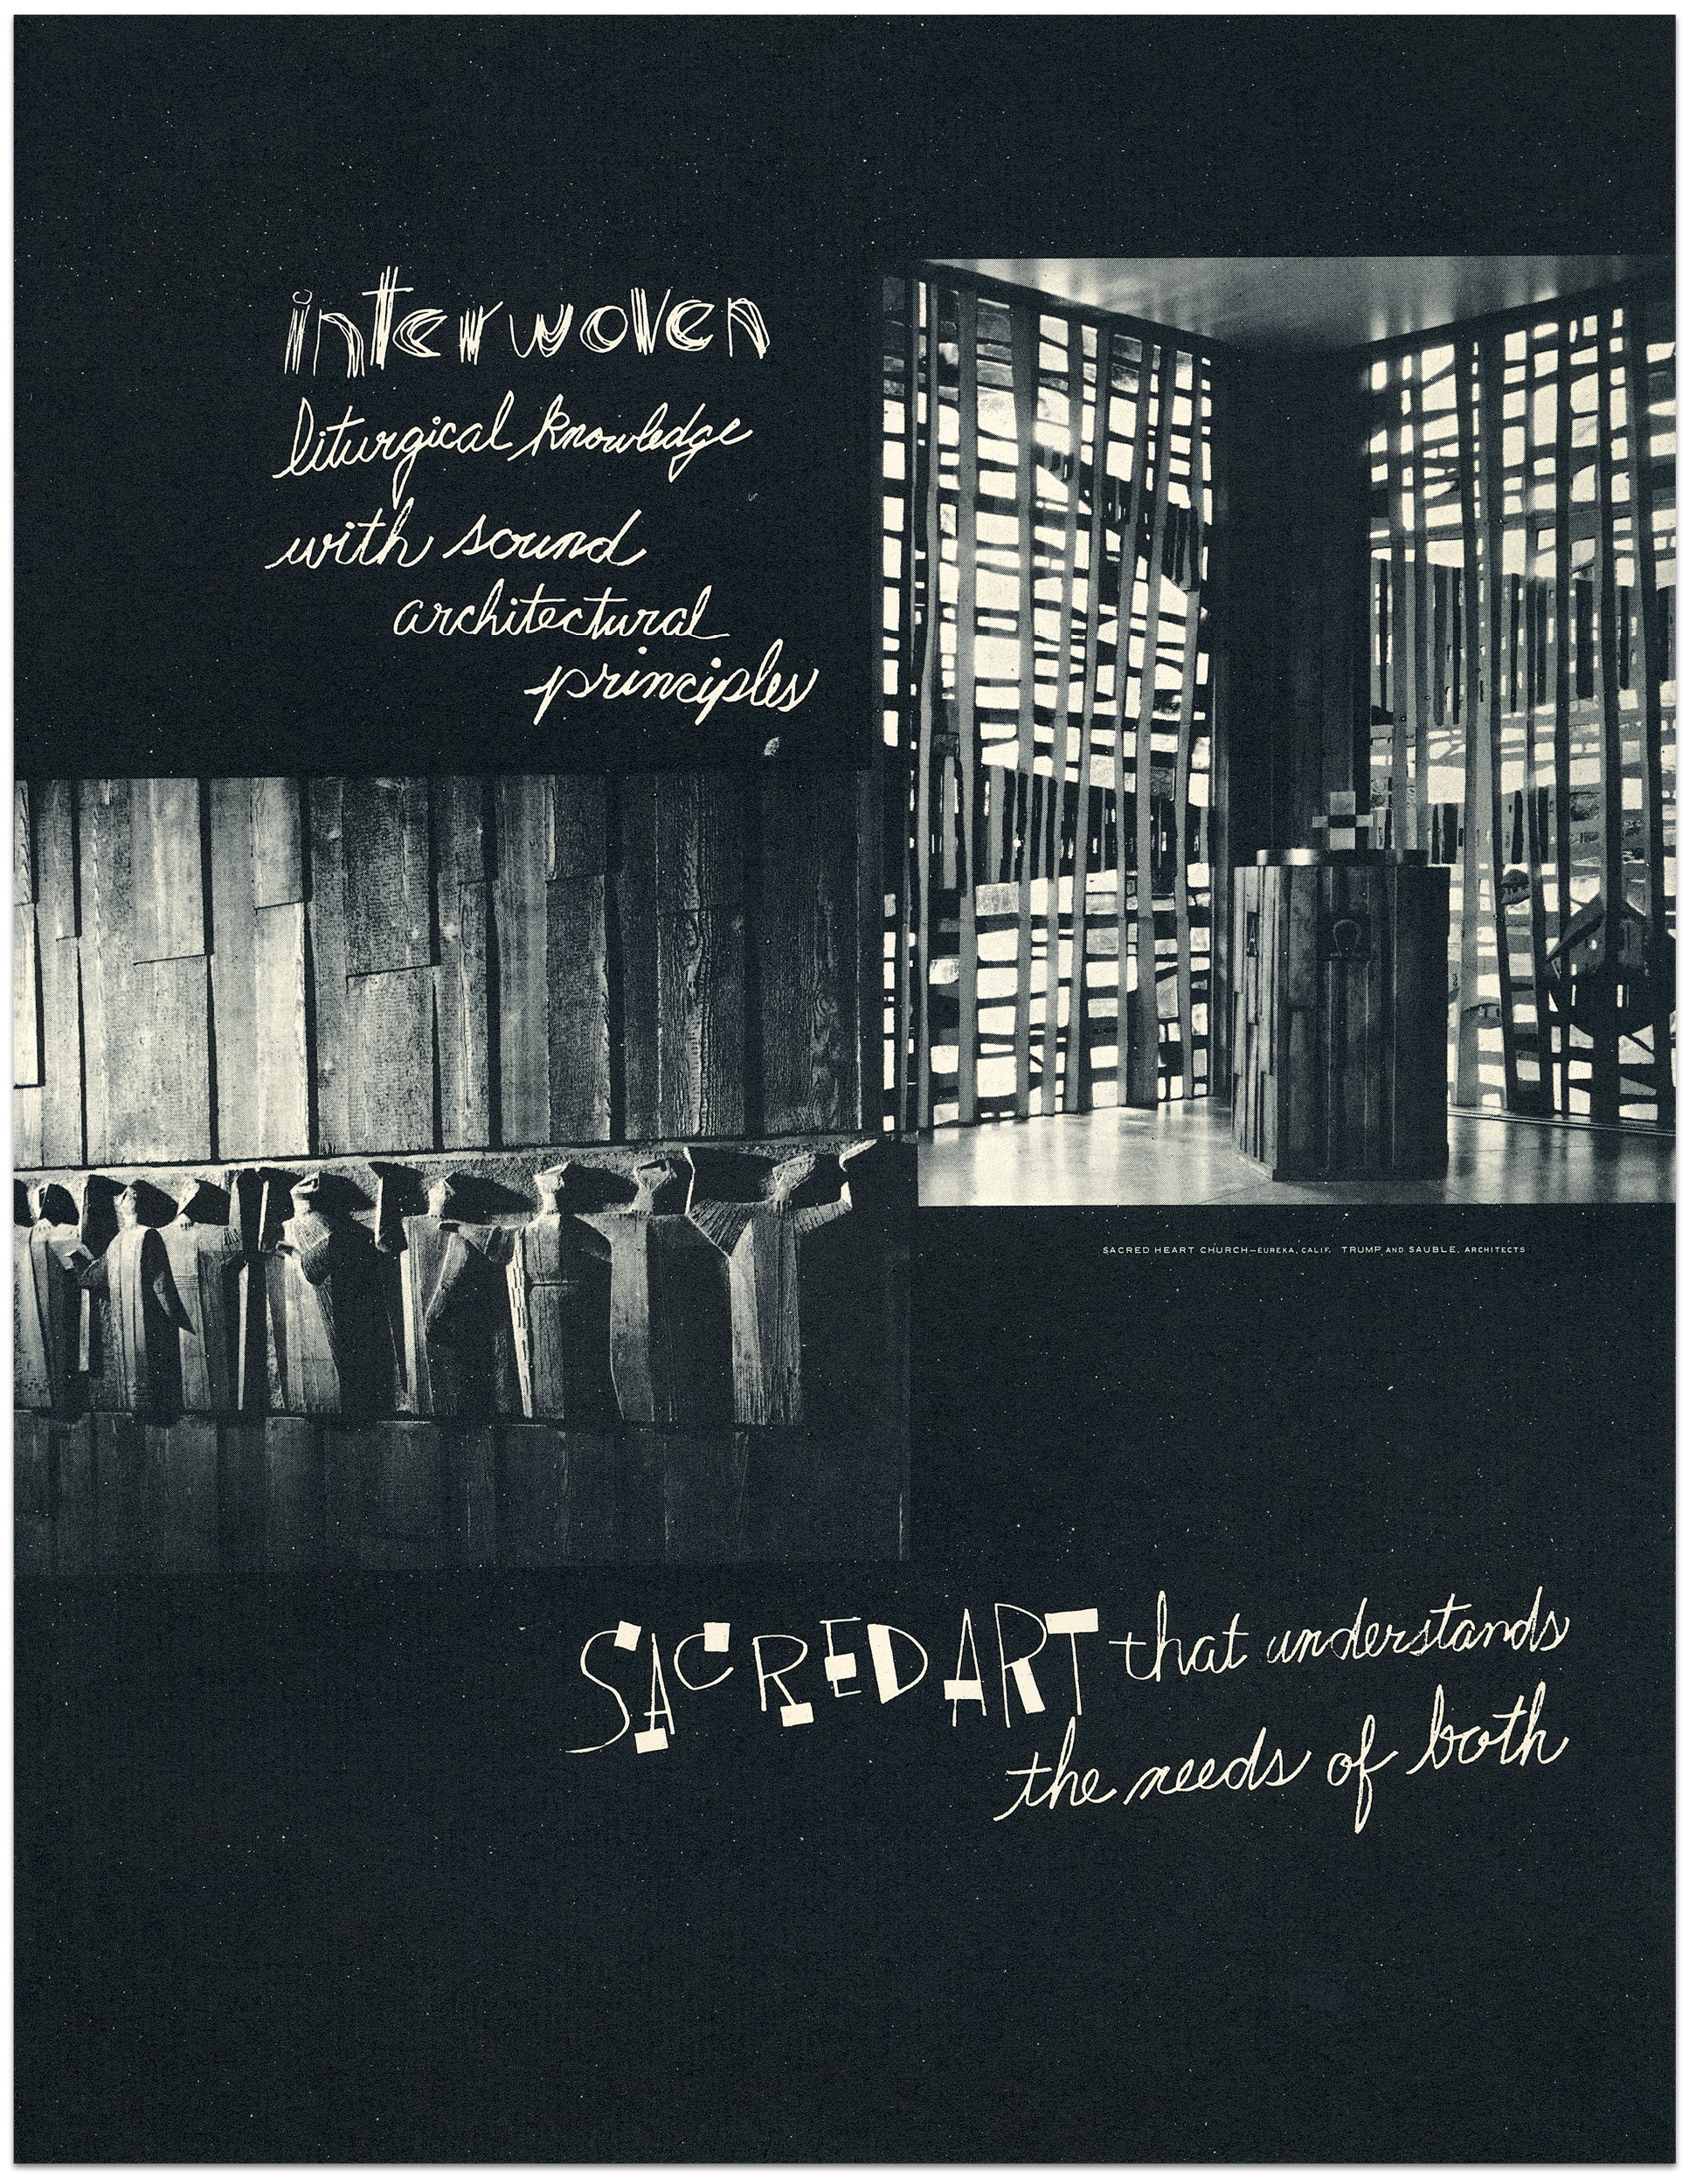 interwoven
liturgical knowledge
with sound
architectural
principles
SACRED HEART CHURCH—EUREKA, CALIF. TRUMP AND SAUBLE, ARCHITECTS
SACRED ART that understands
the needs of both